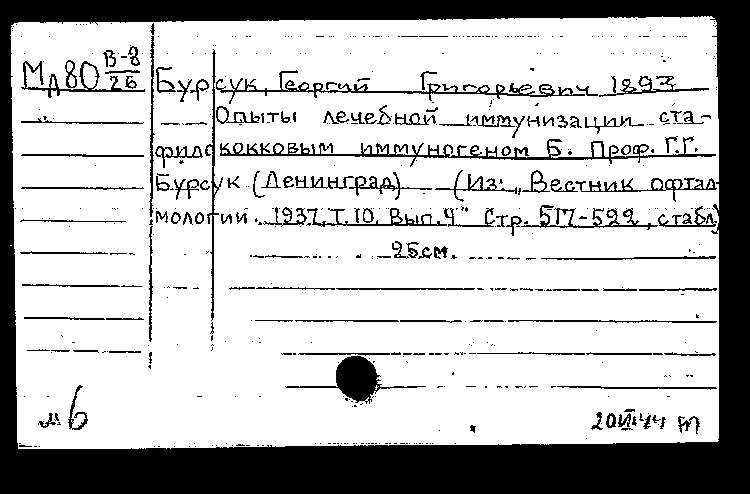 Мд80 В-8/26
Бурсук, Георгий Григорьевич 1893
Опыты лечебной иммунизации ста-
филококковым иммуногеном Б. Проф. Г.Г.
Бурсук (Ленинград) (Из: „Вестник офтал-
мологии. 1937, Т.10. Вып.4" Стр. 517-522, с табл.)
25см.
м6
20 VII 44